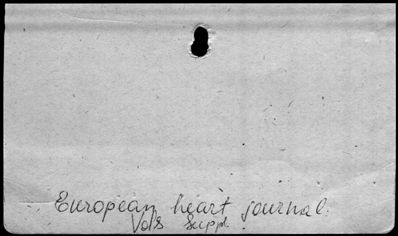 European heart journal.
Vols. Suppl.